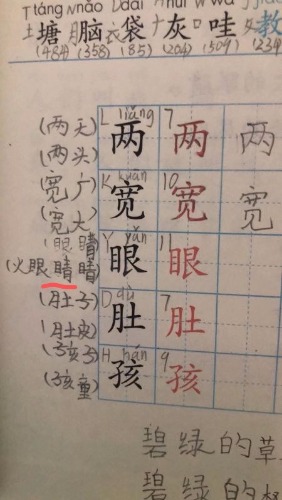 Ttáng Nnǎo Ddài Huī Wwā
土塘月脑衣袋十灰口哇攵教
(484) (358) (85) (204) (509) (234
(两天) L liǎng 7
两 两 两
(两头)
(宽广) K kuān 10
宽 宽 宽
(宽大)
(眼睛) Y yǎn 11
(火眼睛睛) 眼 眼
(肚子) D dù 7
肚 肚
(肚皮)
(孩子) H hái 9
(孩童) 孩 孩
碧绿的草
碧绿的